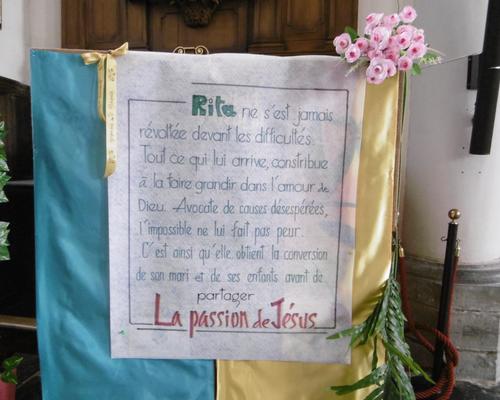 Rita ne s'est jamais
révoltée devant les difficultés.
Tout ce qui lui arrive, constribue
à la faire grandir dans l'amour de
Dieu. Avocate de causes désespérées,
l'impossible ne lui fait pas peur.
C'est ainsi qu'elle obtient la conversion
de son mari et de ses enfants avant de
partager
La passion de Jésus